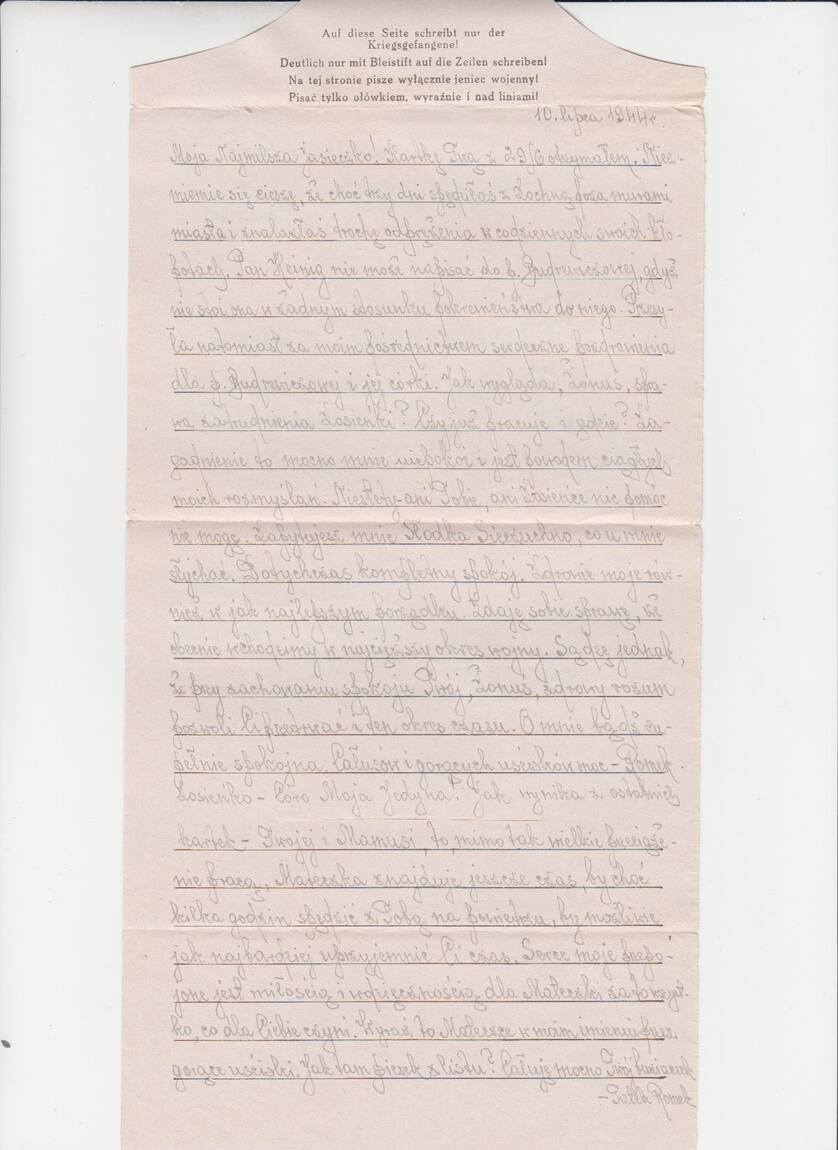 Auf diese Seite schreibt nur der
Kriegsgefangene!
Deutlich nur mit Bleistift auf die Zeilen schreiben!
Na tej stronie pisze wyłącznie jeniec wojenny!
Pisać tylko ołówkiem, wyraźnie i nad liniami!
10. lipca 1944 r.
Moja Najmilsza Jasieczko! Kartkę Twą z 29/6 otrzymałem. Niez-
miernie się cieszę, że choć trzy dni spędziłaś z Zochną poza murami
miasta i znalazłaś trochę odprężenia w codziennych swoich kło-
potach. Pan Heinig nie może napisać do p. Budrewiczowej, gdyż
nie stoi ona w żadnym stosunku pokrewieństwa do niego. Przesy-
ła natomiast za moim pośrednictwem serdeczne pozdrowienia
dla p. Budrewiczowej i jej córki. Jak wygląda, Żonuś, spra-
wa zatrudnienia Zosieńki? Czy już pracuje i gdzie? Za-
gadnienie to mocno mnie niepokoi i jest powodem ciągłych
moich rozmyślań. Niestety - ani Tobie, ani nic pomoc
nie mogę. Zapytujesz mnie Słodka co u mnie
słychać. Dotychczas kompletny spokój. Zdrowie moje rów-
nież w jak najlepszym porządku. Zdaję sobie sprawę, że
obecnie wchodzimy w najcięższy okres wojny. Sądzę jednak,
że przy zachowaniu spokoju Twój, Żonuś, zdrowy rozum
pozwoli Ci przetrwać i ten okres czasu. O mnie bądź zu-
pełnie spokojna. Całusów i gorących uścisków moc - Romek.
Zosieńko - Córo Moja Jedyna! Jak wynika z ostatnich
kartek - Twojej i Mamusi, to, mimo tak wielkie przeciąże-
nie pracą, Mateczka znajduje jeszcze czas, by choć
kilka godzin spędzić z Tobą na powietrzu, by możliwie
jak najbardziej uprzyjemnić Ci czas. Serce moje przepo-
jone jest miłością i wdzięcznością dla Mateczki za to wszyst-
ko, co dla Ciebie czyni. Wyraź to Mateczce w moim imieniu przez
gorące uściski. Jak tam piesek z listu? Całuję mocno Twój
- Romek